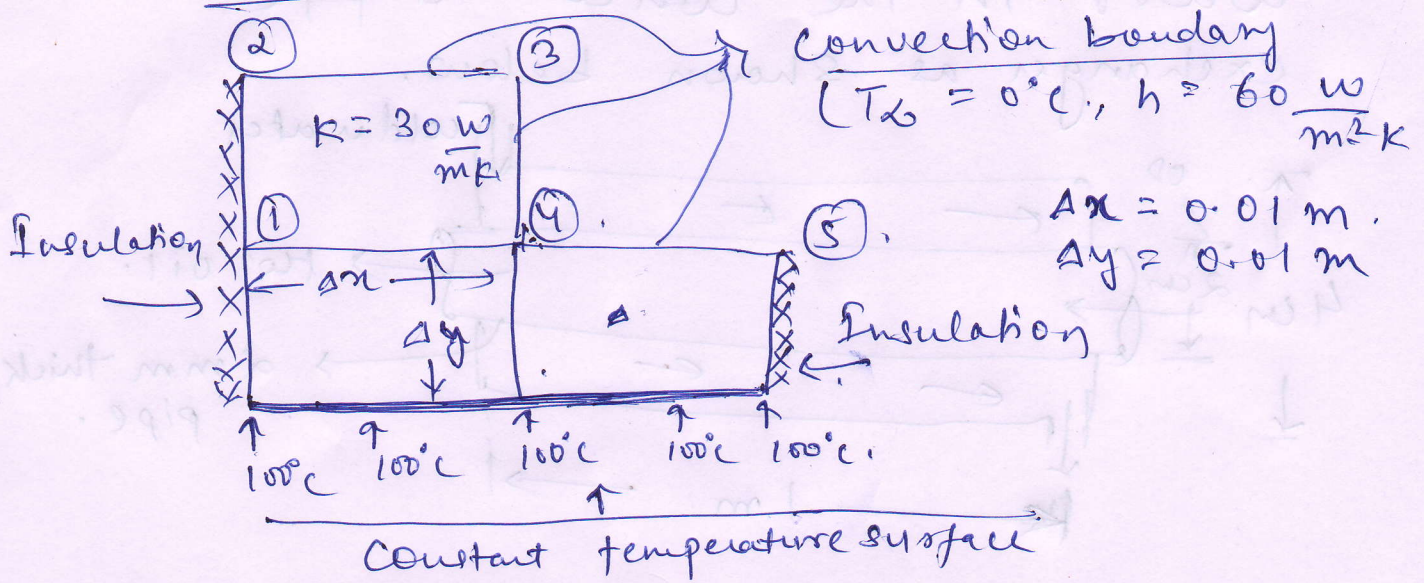 ② ③ convection boundary
(T∞ = 0°C., h = 60 w/m²K
K = 30 w/mk
① ④ ⑤
Δx = 0.01 m.
Δy = 0.01 m
Insulation
Δx
Δy
Insulation
100°C 100°C 100°C 100°C 100°C.
Constant temperature surface